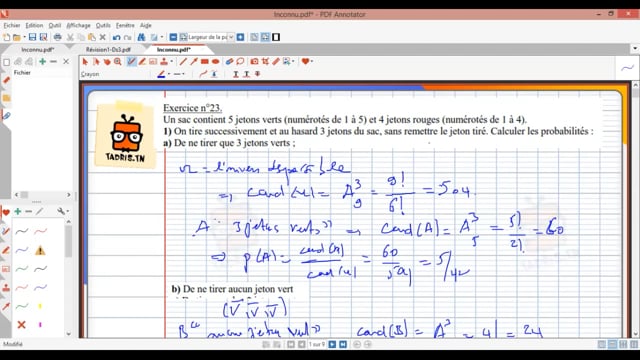 Inconnu.pdf* - PDF Annotator
Fichier Edition Outil Affichage Outils Fenetre Aide
Largeur de la pa
Inconnu.pdf* Révision1-Ds3.pdf Inconnu.pdf*
Fichier
Crayon
TADRIS.TN
Exercice n°23.
Un sac contient 5 jetons verts (numérotés de 1 à 5) et 4 jetons rouges (numérotés de 1 à 4).
1) On tire successivement et au hasard 3 jetons du sac, sans remettre le jeton tiré. Calculer les probabilités :
a) De ne tirer que 3 jetons verts ;
= A³₉ = 9!/6! = 504
A: 3 jetons verts" ⇒ card(A) = A³₅ = 5!/2! = 60
⇒ p(A) = card(A)/card(Ω) = 60/504 = 5/42
b) De ne tirer aucun jeton vert
(V̄, V̄, V̄)
B" aucun jeton vert" card(B) = A³ = 4! = 24
1 sur 9